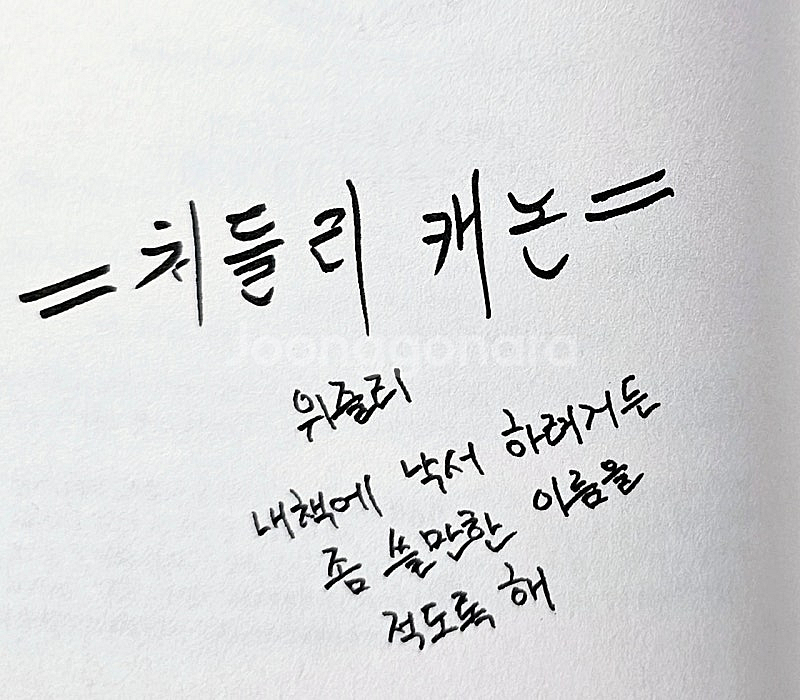 = 처들리 캐논 =
Joonggonara
위즐리
내책에 낙서 하려거든
좀 쓸만한 이름을
적도록 해